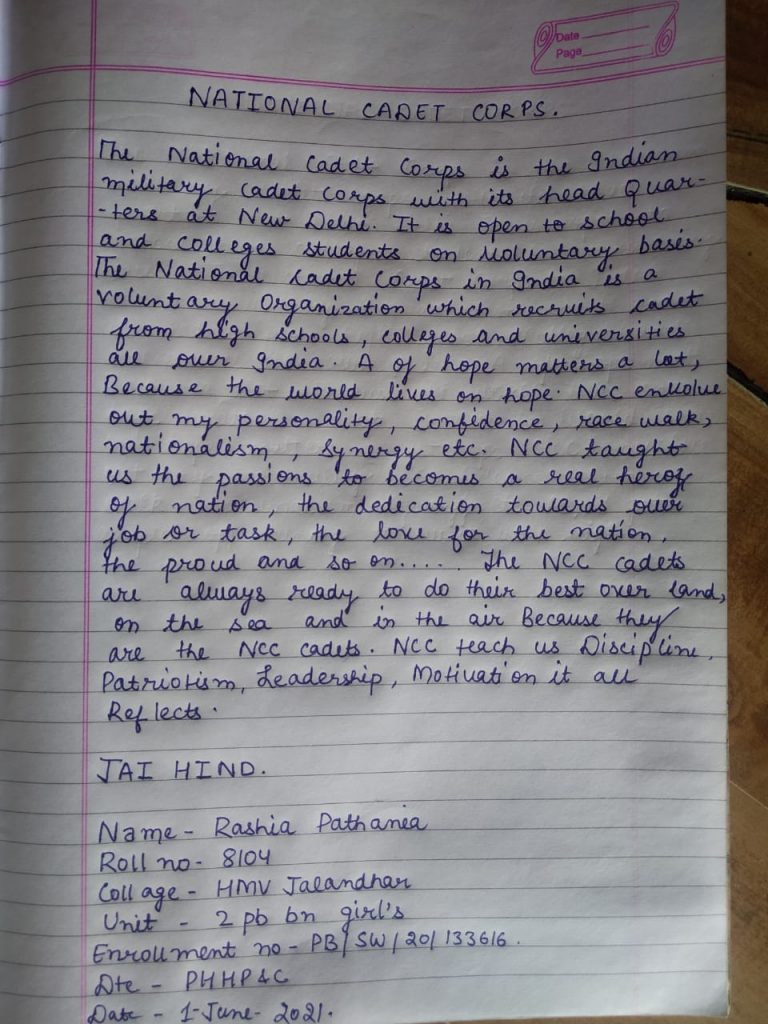 Date
Page
NATIONAL CADET CORPS.
The National Cadet Corps is the Indian
military cadet corps with its head Quar-
-ters at New Delhi. It is open to school
and colleges students on voluntary basis.
The National cadet Corps in India is a
voluntary Organization which recruits cadet
from high schools, colleges and universities
all over India. A of hope matters a lot,
Because the world lives on hope. NCC
out my personality, confidence, race walk,
nationalism, Synergy etc. NCC taught
us the passions to becomes a real
of nation, the dedication towards over
job or task, the love for the nation,
the proud and so on..... The NCC cadets
are always ready to do their best over land,
on the sea and in the air Because they
are the NCC cadets. NCC teach us Discipline,
Patriotism, Leadership, Motivation it all
Reflects.
JAI HIND.
Name - Rashia Pathania
Roll no - 8104
Collage - HMV Jalandhar
Unit - 2 pb bn girl's
Enrollment no - PB/SW/20/133616.
Dte - PHHP&C
Date - 1-June-2021.